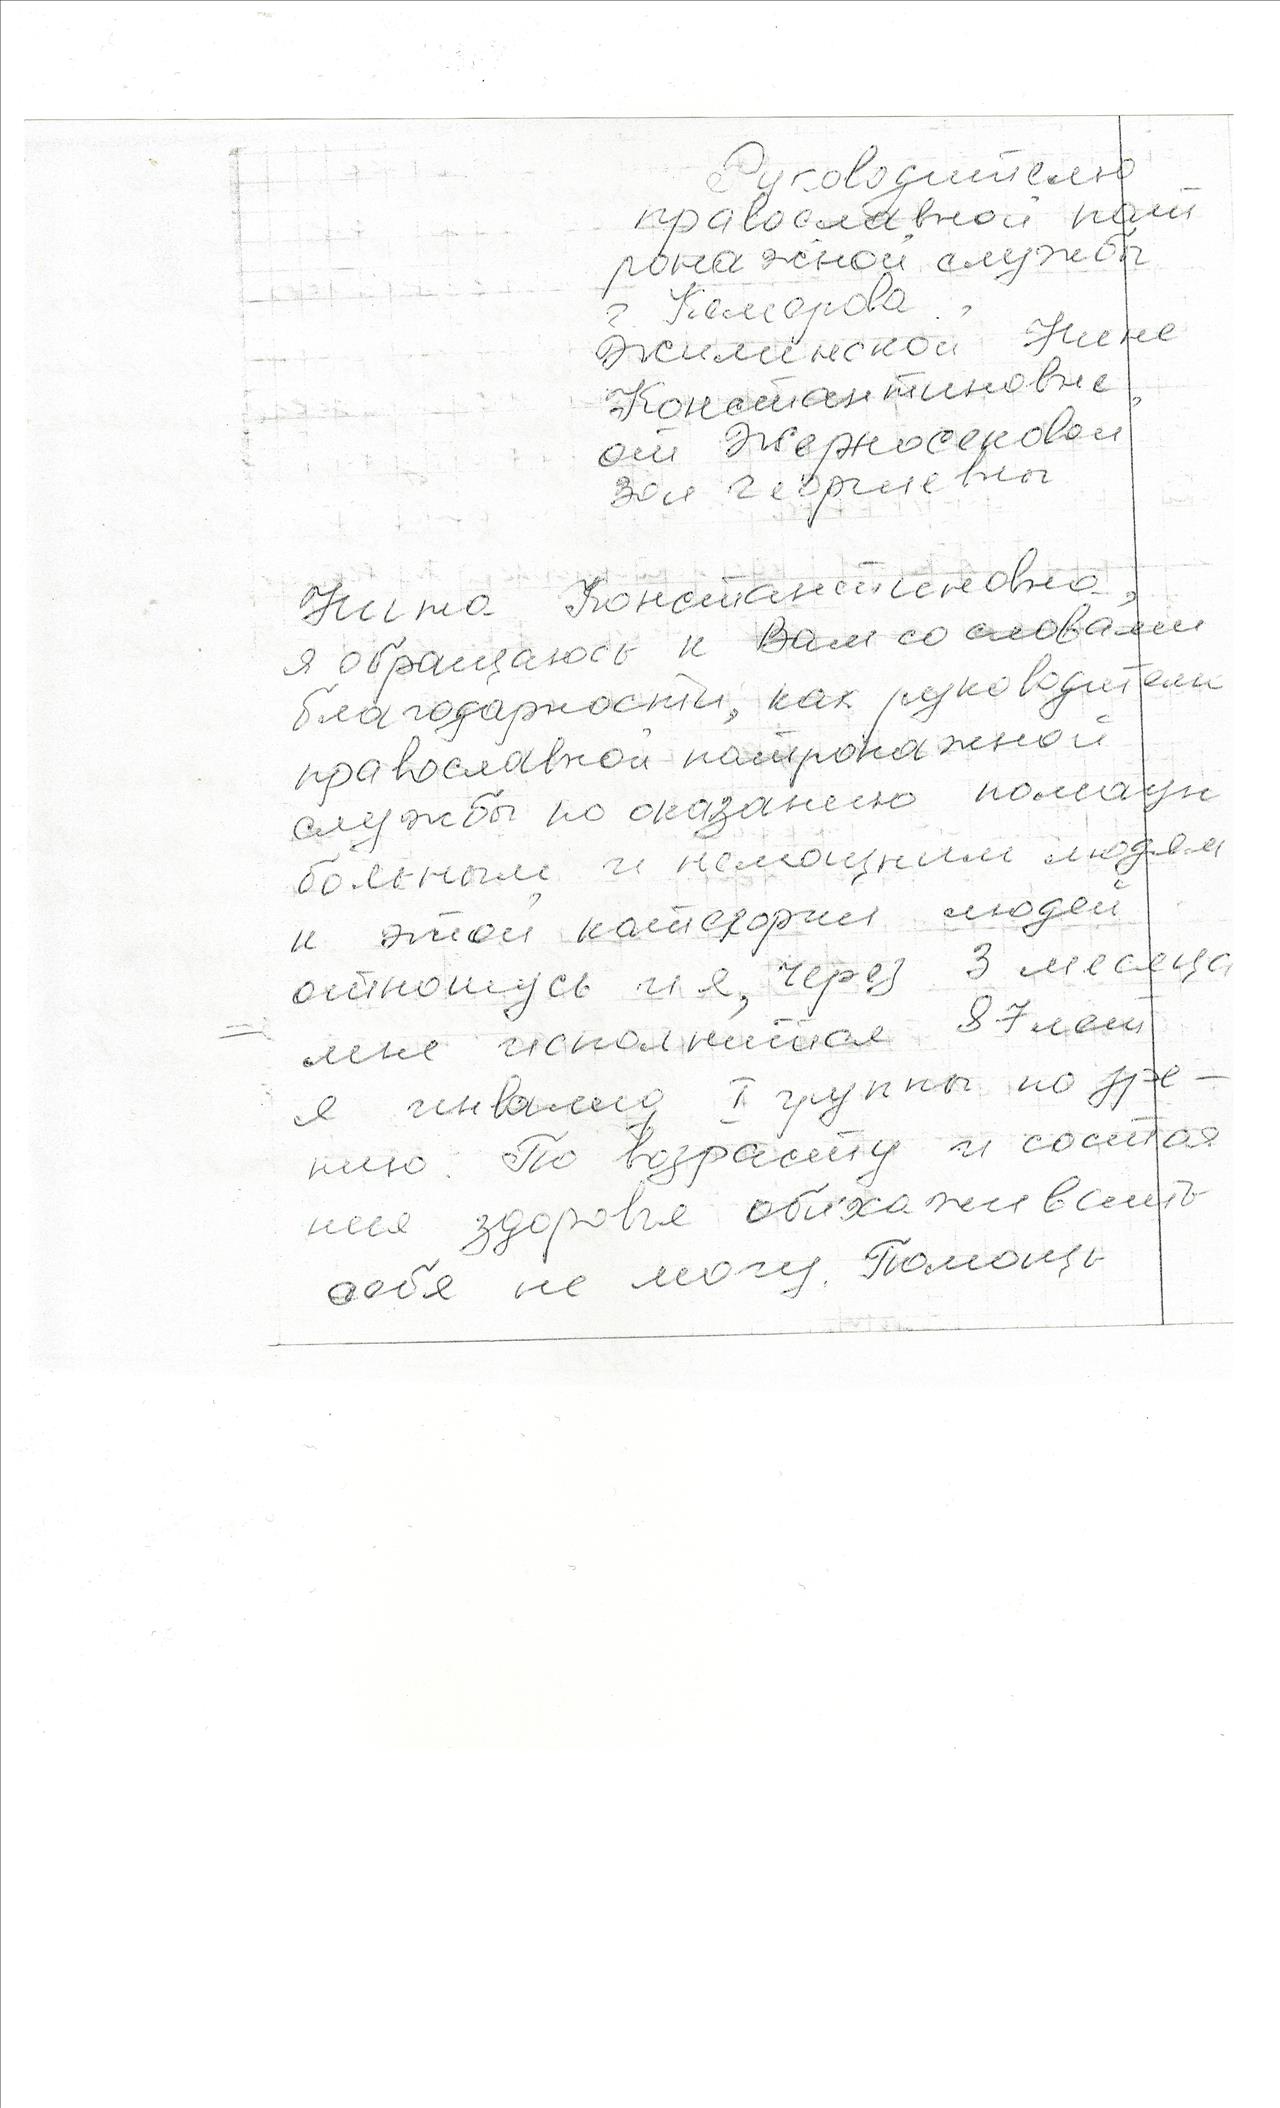 Руководителю
православной пат
ронажной службы
г. Кемерова,
Жилинской Нине
Константиновне,
от Жерносековой
Зои Георгиевны
Нина Константиновна,
я обращаюсь к Вам со словами
благодарности, как руководителю
православной патронажной
службы по оказанию помощи
больным и немощным людям
к этой категории людей
отношусь и я, через 3 месяца
мне исполнится 87 лет
я инвалид I группы по зре-
нию. По возрасту и состоя
ния здоровья обихаживать
себя не могу. Помощь